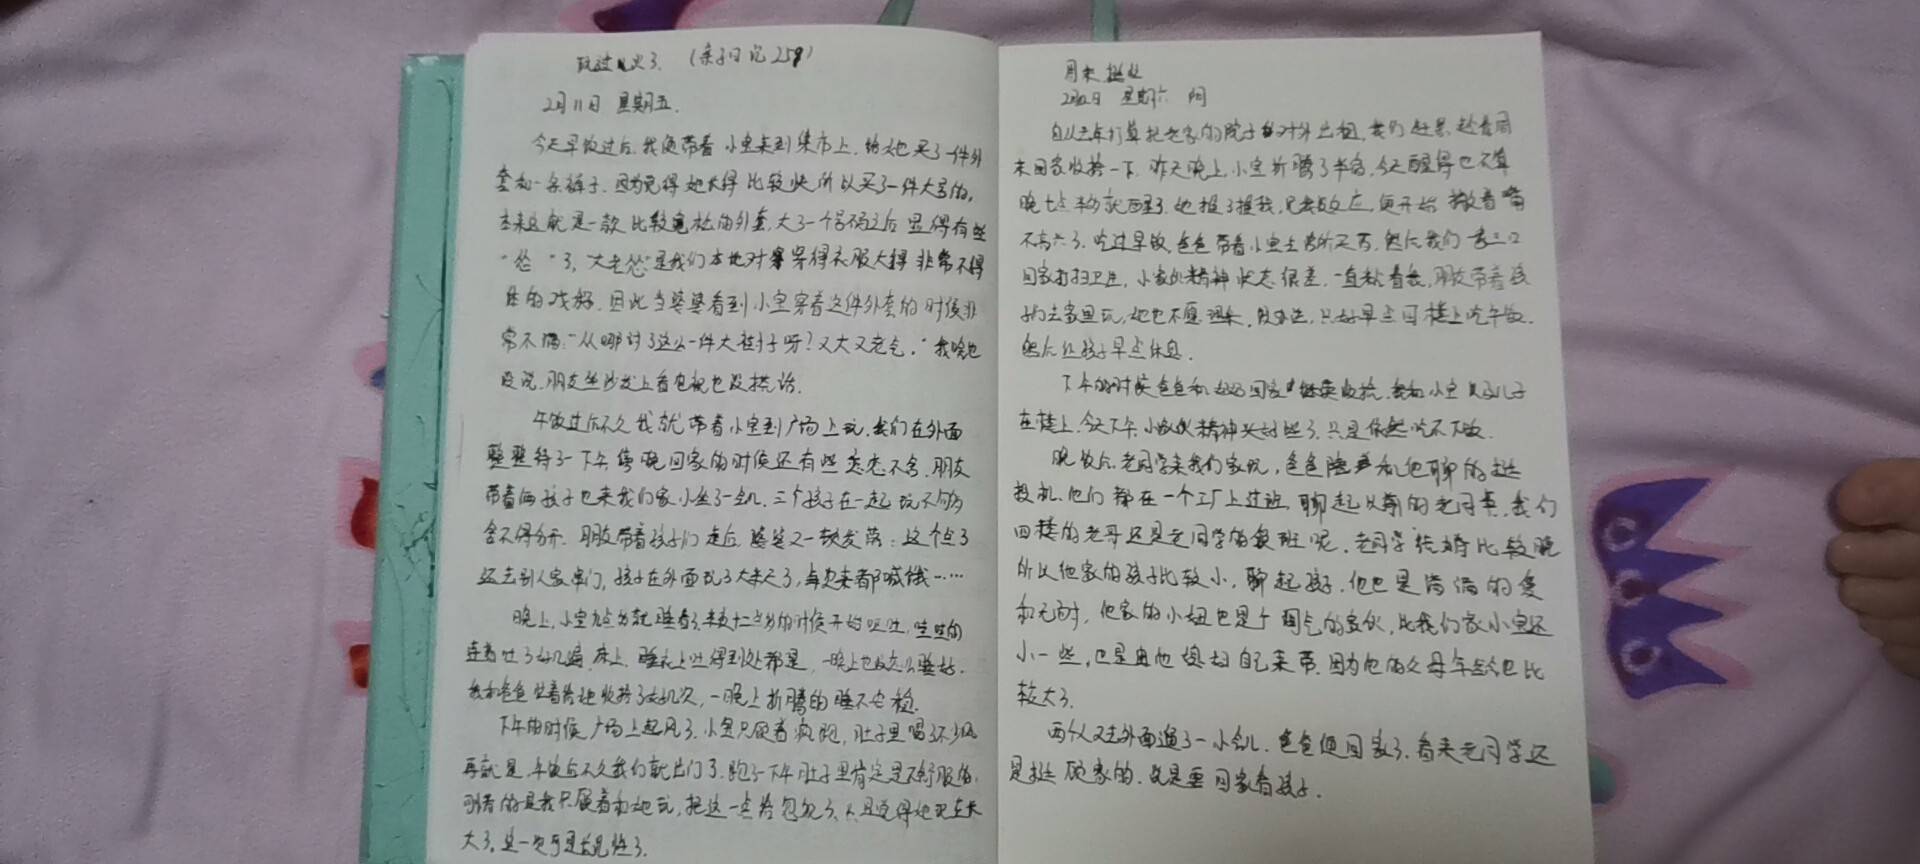 玩过火了. (亲子日记259)
2月11日 星期五.
今天早饭过后,我便带着小宝来到集市上.给她买了一件外
套和一条裤子.因为觉得她长得比较快所以买了一件大号的,
本来这就是一款比较宽松的外套,大了一个号码之后显得有些
"怂"了,"大老怂"是我们本地对穿得衣服大得非常不得
体的戏称.因此当婆婆看到小宝穿着这件外套的时候非
常不满:"从哪讨了这么一件大褂子呀?又大又老气."我啥也
没说.朋友坐沙发上看电视也没搭话.
午饭过后不久我就带着小宝到广场上玩.我们在外面
整整待了一下午傍晚回家的时候还有些恋恋不舍.朋友
带着俩孩子也来我们家小坐了一会儿.三个孩子在一起玩不够
舍不得分开.朋友带着孩子们走后,婆婆又一顿发落:这个点了
还去别人家串门,孩子在外面玩了大半天了,每次来都喊饿……
晚上,小宝九点多就睡着了,半夜十二点多的时候开始呕吐,哇哇的
连着吐了好几遍.床上,睡衣上吐得到处都是,一晚上也没怎么睡好.
我和爸爸忙着给她收拾了好几次,一晚上折腾的睡不安稳.
下午的时候广场上起风了,小宝只顾着疯跑,肚子里喝了不少风
再就是,午饭后不久我们就出门了.跑了一下午肚子里肯定是不舒服的.
可惜的是我只顾着和她玩,把这一点给忽视了.
大了.这一次可是长记性了.
周末
2月12日 星期六 阴
自从去年打算把老家的院子对外出租,我们赶紧趁着周
末回家收拾一下.昨天晚上,小宝折腾了半宿.今天醒得也不算
晚七点半多就醒了.她摸了摸我,见我没反应,便开始撇着嘴
不高兴了.吃过早饭,爸爸带着小宝去诊所买药.然后我们一家三口
回家打扫卫生,小家伙精神状态很差.一直粘着我,朋友带着孩
子们去家里玩,她也不愿理采.没办法,只好早点回楼上吃午饭.
然后让孩子早点休息.
下午的时候爸爸和奶奶回家继续收拾.我和小宝只好儿子
在楼上.今天下午,小家伙精神头好些了.只是依然吃不下饭.
晚饭后,老同学来我们家玩,爸爸陪着和他聊的挺
投机.他们都在一个工厂上过班.聊起以前的老同事,我们
四楼的老哥还是老同学的领班呢.老同学结婚比较晚
所以他家的孩子比较小.聊起孩子.他也是满满的爱
和无奈.他家的小妞也是个调气的家伙,比我们家小宝还
小一些,也是由他媳妇自己来带.因为他的父母年龄也比
较大了.
两个人又去外面遛了一小会儿.爸爸便回家了.看来老同学还
是挺顾家的.说是要回家看孩子.